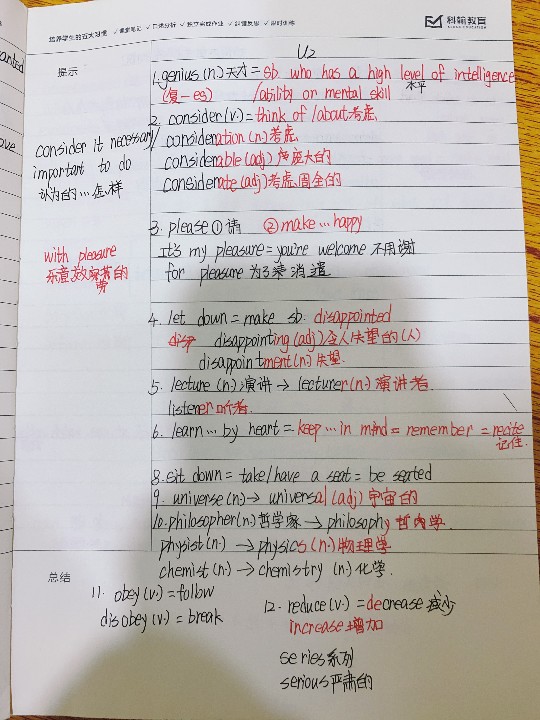 培养学生的五大习惯 ✓课堂笔记 ✓ 独立完成作业 ✓ 及时反思 ✓ 限时训练
科翰教育
提示
U2
1.genius(n.)天才=sb who has a high level of intelligence
(复-es) /ability or mental skill 水平
2. consider(v.)=think of /about考虑
consideration(n.)考虑
considerable(adj)
considerate(adj)考虑周全的
consider it necessary/
important to do
认为的…怎样
3. please①请 ②make…happy
It's my pleasure=you're welcome不用谢
for pleasure为了乘消遣
with pleasure
乐意效劳的
劳
4. let down=make sb. disappointed
disp disappointing(adj)令人失望的(人)
disappointment(n.)失望.
5. lecture(n.)演讲→lecturer(n.)演讲者.
listener听者.
6. learn…by heart=keep…in mind=remember=recite
记住.
8.sit down=take/have a seat=be seated
9. universe(n.)→universal(adj)宇宙的
10.philosopher(n.)哲学家→philosophy哲学.
physist(n.)→physics(n.)物理学
chemist(n.)→chemistry (n.)化学.
总结
11. obey(v.)=follow
disobey(v.)=break
12. reduce(v.)=decrease减少
increase增加
series系列
serious严肃的